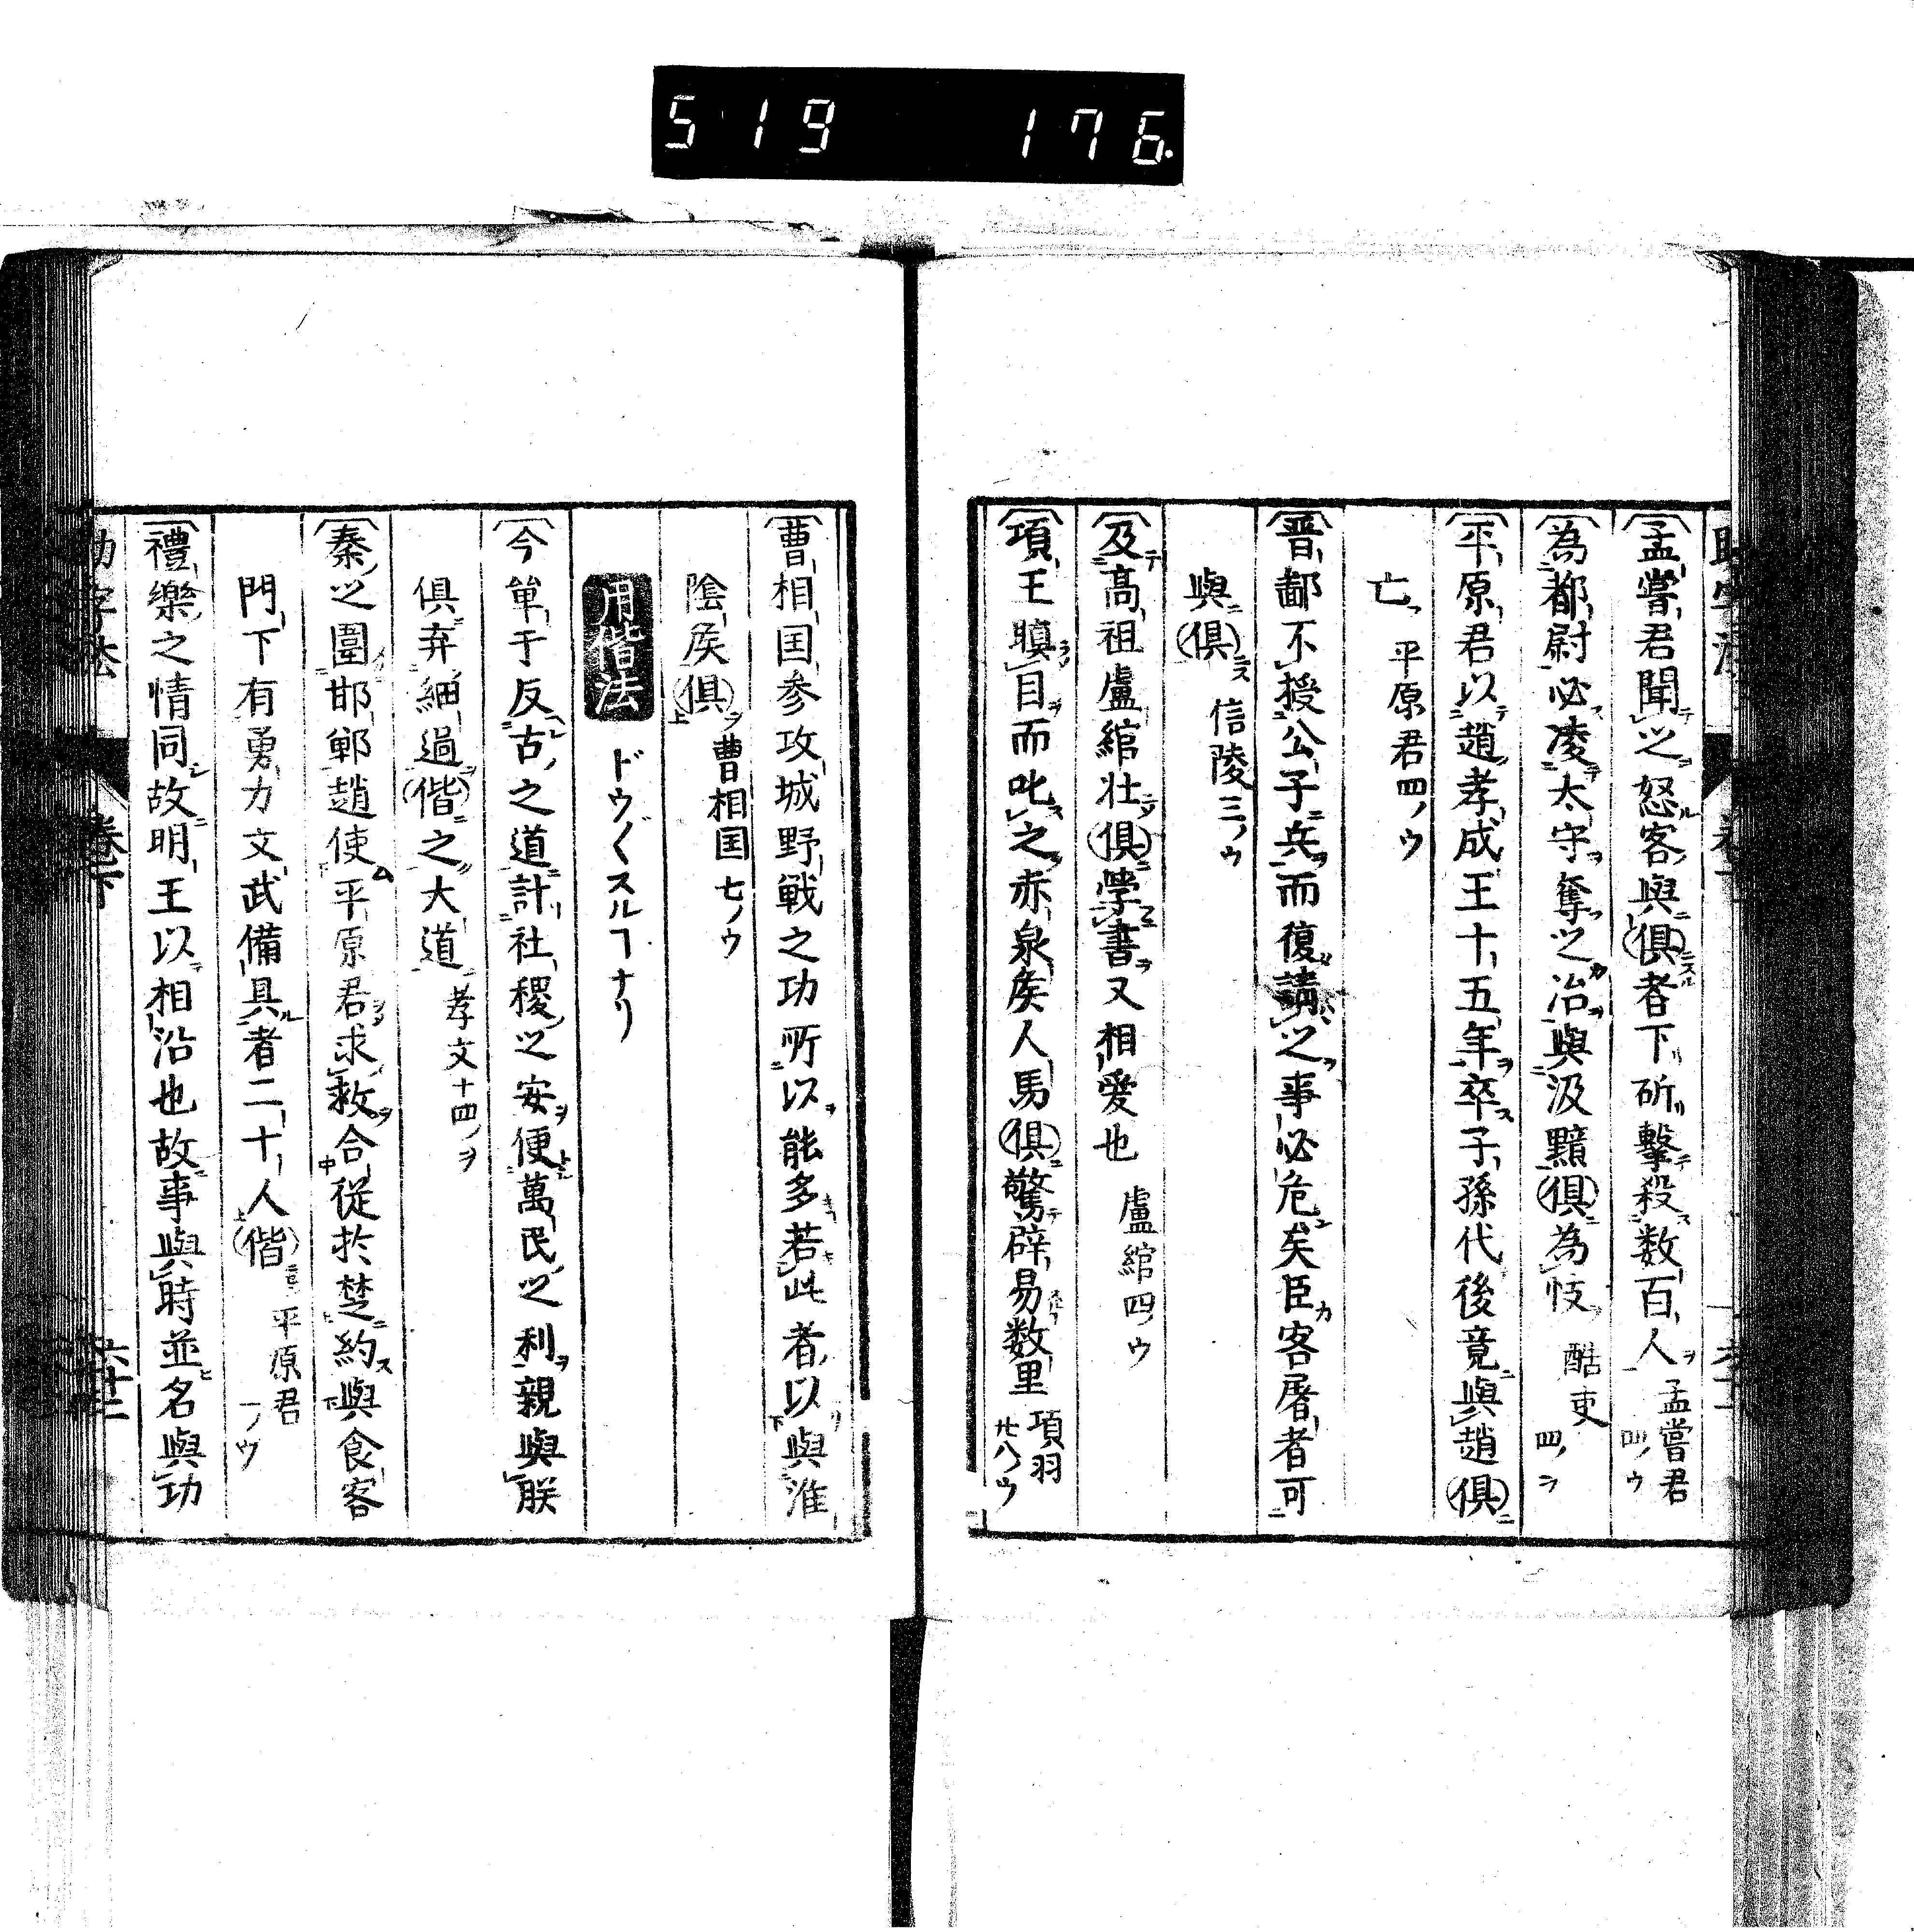 519 176.
孟嘗君聞之怒客與俱者下斫擊殺数百人 孟嘗君 四ノウ
為都尉必凌太守奪之治與汲黯俱為忮 酷吏 四ノヲ
平原君以趙孝成王十五年卒子孫代後竟與趙俱
亡 平原君四ノウ
晋鄙不授公子兵而復請之事必危矣臣客屠者可
與俱 信陵三ノウ
及高祖盧綰壮俱學書又相愛也 盧綰四ノウ
項王瞋目而叱之赤泉侯人馬俱驚辟易数里 項羽 廿八ノウ
曹相国参攻城野戦之功所以能多若此者以與淮
陰侯俱 曹相国七ノウ
用偕法 ドウ〴〵スルヿナリ
今単于反古之道計社稷之安便萬民之利親與朕
俱弃細過偕之大道 孝文十四ノヲ
秦之圍邯鄲趙使平原君求救合從於楚約與食客
門下有勇力文武備具者二十人偕 平原君 一ノウ
禮樂之情同故明王以相沿也故事與時並名與功
助字法 巻下 六十二